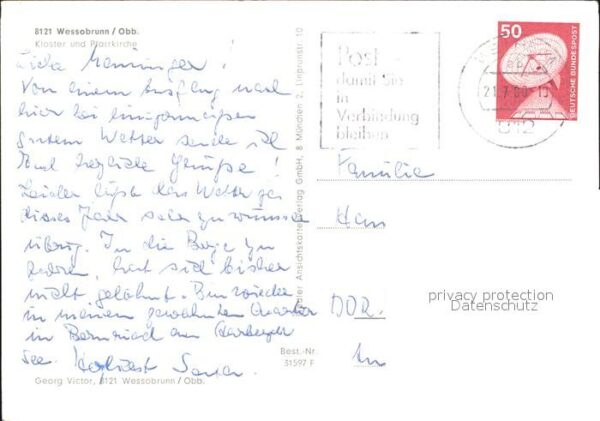 8121 Wessobrunn / Obb.
Kloster und Pfarrkirche
Liebe Menninger!
Von einem Ausflug nach
hier bei einigermaßen
gutem Wetter sende ich
Euch herzliche Grüße!
Leider läßt das Wetter ja
dieses Jahr sehr zu wünschen
übrig. In die Berge zu
fahren, hat sich bisher
nicht gelohnt. Bin wieder
in meinem gewohnten Quartier
in Bernried am Starnberger
See. Herzlichst
Georg Victor, 8121 Wessobrunn / Obb.
Best.-Nr.
31597 F
Ansichtskarten-Verlag GmbH, 8 München 2, Linprunstr. 10
Post -
damit Sie
in
Verbindung
bleiben
21.7.80-15
812
50
DEUTSCHE BUNDESPOST
Familie
Han
DDR.
In
privacy protection
Datenschutz